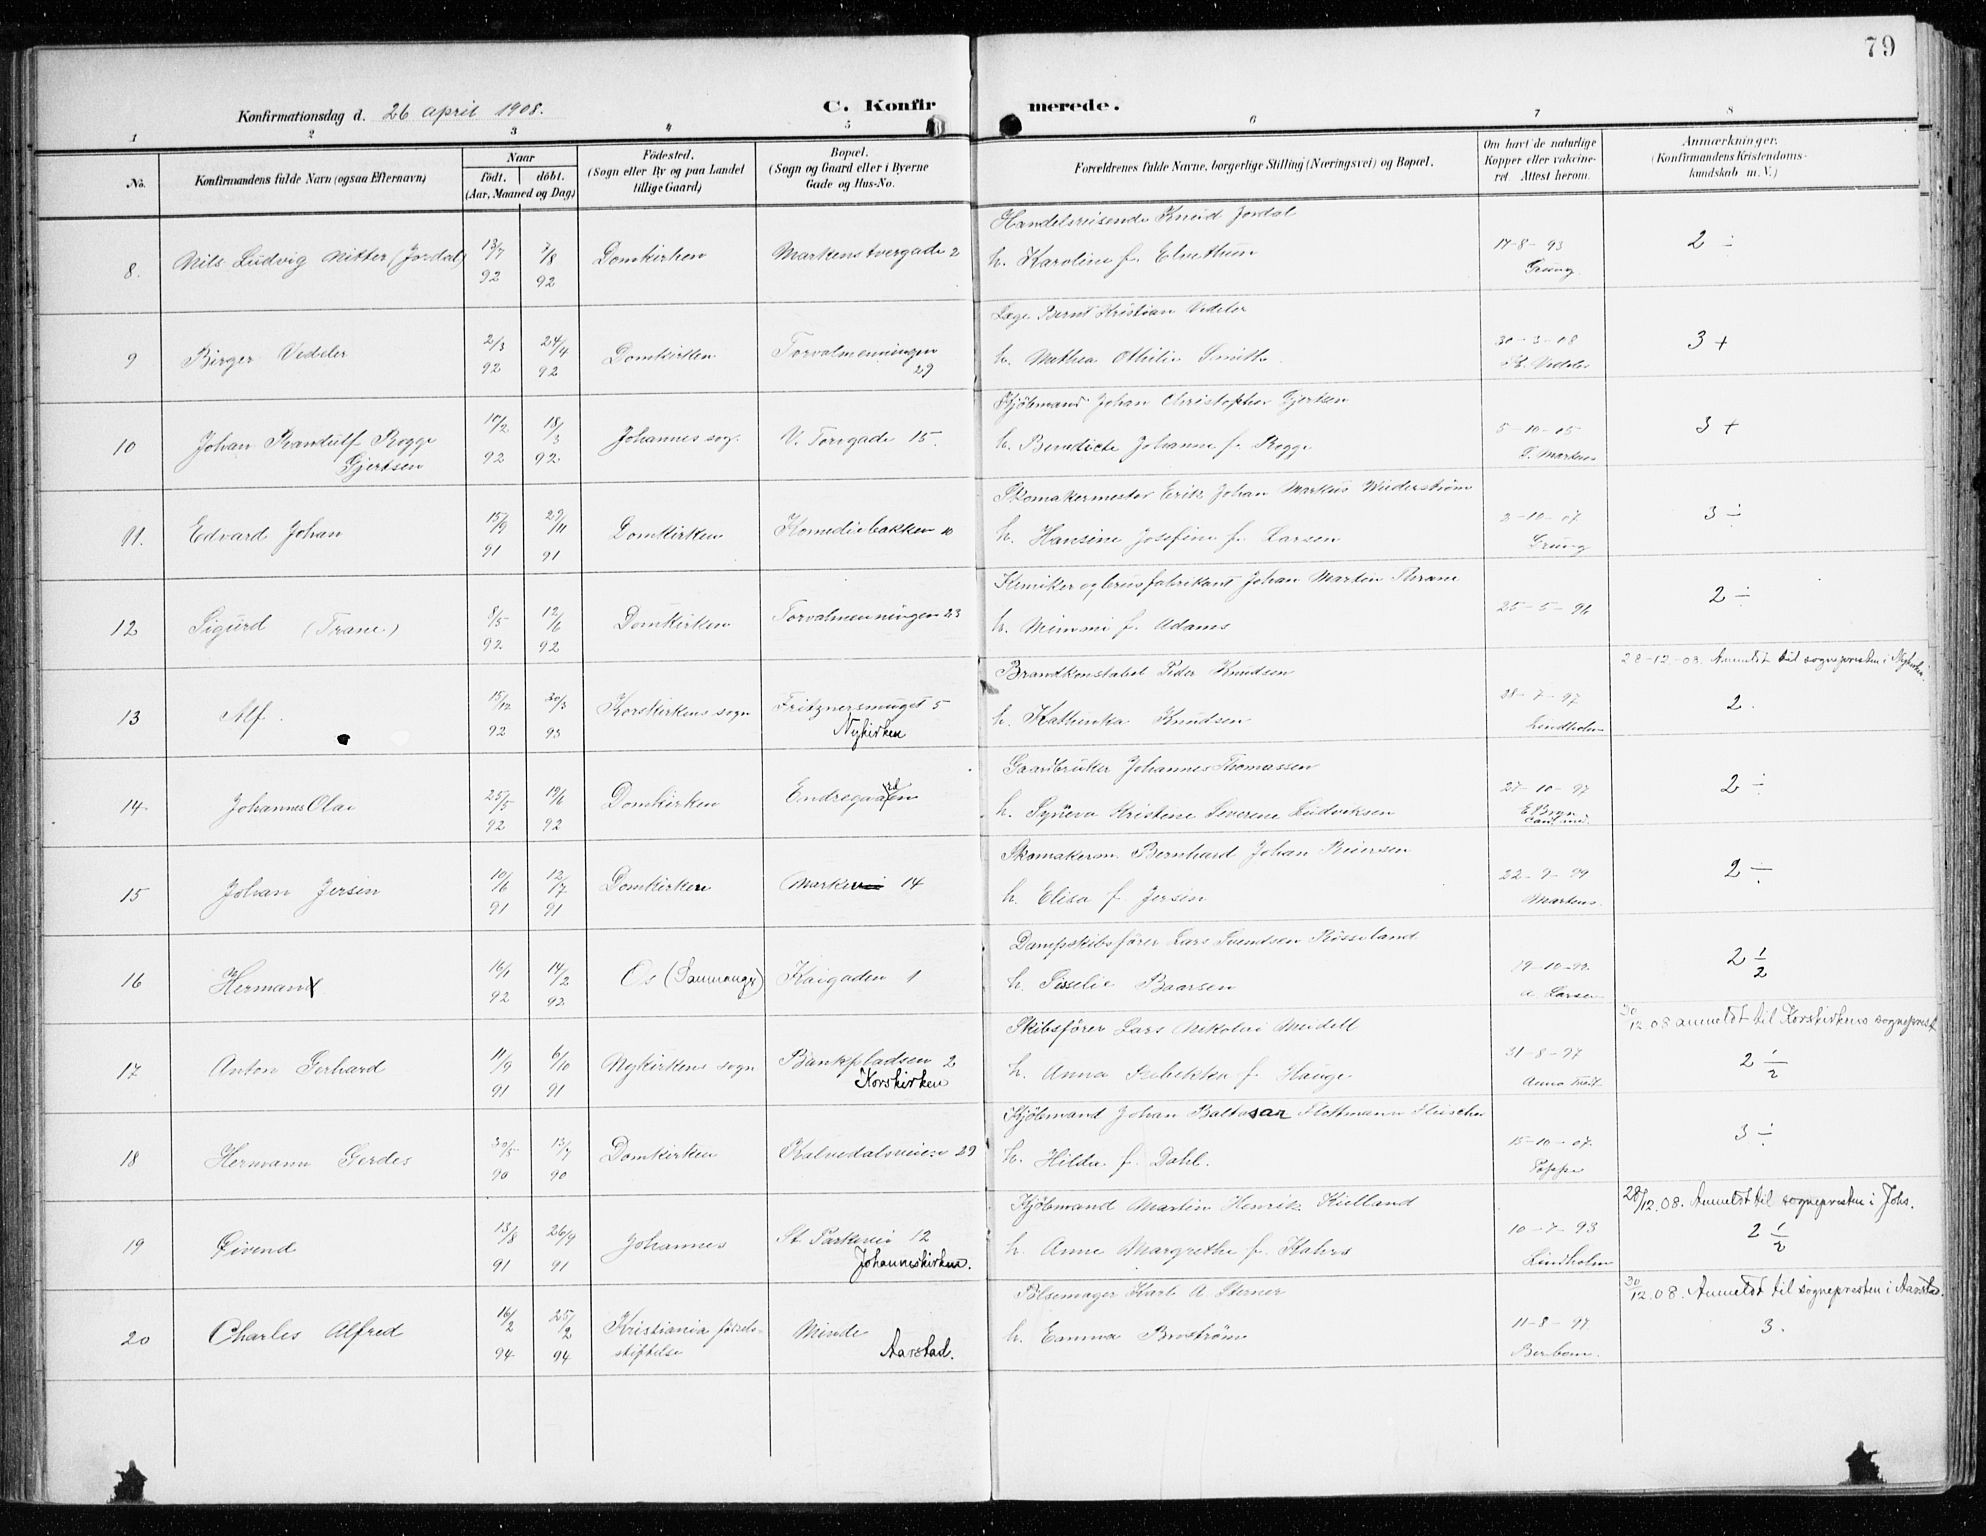 79
Konfirmationsdag d. 26 april 1908. C. Konfirmerede.
1 2 3 4 5 6 7 8
No. Konfirmandens fulde Navn (ogsaa Efternavn) Naar født. døbt. (Aar, Maaned og Dag) Fødested. (Sogn eller By og paa Landet tillige Gaard) Bopæl. (Sogn og Gaard eller i Byerne Gade og Hus-No. Forældrenes fulde Navne, borgerlige Stilling (Næringsvei) og Bopæl. Om havt de naturlige Kopper eller vakcineret. Attest herom. Anmærkninger. (Konfirmandens Kristendomskundskab m. V.)
Handelsreisende Jordal
8. Nils Ludvig Nitter (Jordal) 13/7 92 7/8 92 Domkirken Markens tvergade 2 h. Karoline f. Elvethun 17-8-93 Grung 2 ÷
Læge Bernt Kristian Vedeler
9 Birger Vedeler 2/3 92 24/4 92 Domkirken Torvalmenningen 29 h. Mathea Othilie Smith. 30-3-08 Vedeler 3 +
Kjøbmand Johan Christopher Gjertsen
10 Johan Randulf Rogge Gjertsen 17/2 92 18/3 92 Johannes sog. V. Torvgade 15. h. Benedicte Johanne f. Rogge 5-10-05 Martens 3 +
Skomakermester Erik Johan Markus Wiederstrøm
11. Edvard Johan 15/9 91 29/11 91 Domkirken Komediebakken 10 h. Hansine Josefine f. Larsen 2-10-07 Grung 3 ÷
Kemiker og brusfabrikant Johan Martin Thrane
12 Sigurd (Trane) 8/5 92 12/6 92 Domkirken Torvalmenningen 23 h. Mimmi f. Adams 25-5-96 2 ÷
28-12-08. Anmeldt til sognepresten i Nykirken.
Brandkonstabel Peder Knudsen
13 Alf. 15/12 92 30/3 93 Korskirkens sogn Fritznersmuget 5 Nykirken h. Kathinka Knudsen 28-7-97 Lindholm 2.
Gaardbruker Johannes Thomassen
14 Johannes Olai 25/5 92 19/6 92 Domkirken Endregaarden h. Syneva Kristine Severene Ludviksen 27-10-97 cand. med. 2 ÷
Skomakerm. Bernhard Johan Reiersen
15 Johan Jersin 10/6 91 12/7 91 Domkirken Markevei 14 h. Elisa f. Jersin 22-9-99 Martens. 2 ÷
Dampskibsfører Lars Svendsen Røsseland
16 Herman 16/1 92 14/2 92 Os (Samnanger) Kaigaden 1 h. Sisselie Baarsen A Larsen 2 1/2
30/12.08 anmeldt til Korskirkens sogneprest
Skibsfører Lars Nikolai Meidell
17 Anton Gerhard 11/9 91 6/10 91 Nykirkens sogn Bankpladsen 2 Korskirken h. Anna Rebekka f. Hauge 31-8-97 2 1/2
Kjøbmand Johan Baltasar Flottmann Fleischer
18 Hermann Gerdes 30/5 90 13/7 90 Domkirken Kalvedalsveien 29 h. Hilda f. Dahl. 15-10-07. 3 ÷
28/12.08. Anmeldt til sognepresten i Johs.
Kjøbmand Martin Henrik Kielland
19 Eivend 13/8 91 26/9 91 Johannes St. Parkevei 12 Johanneskirken. h. Anne Margrethe f. Kahrs 10-7-93 Lindholm 2 1/2
30/12.08. Anmeldt til sognepresten i Aarstad.
Pølsemager Karl A. Sterner
20 Charles Alfred 16/2 94 25/2 94 Kristiania fødselsstiftelse Minde Aarstad. h. Emma Broström 11-8-97 3.